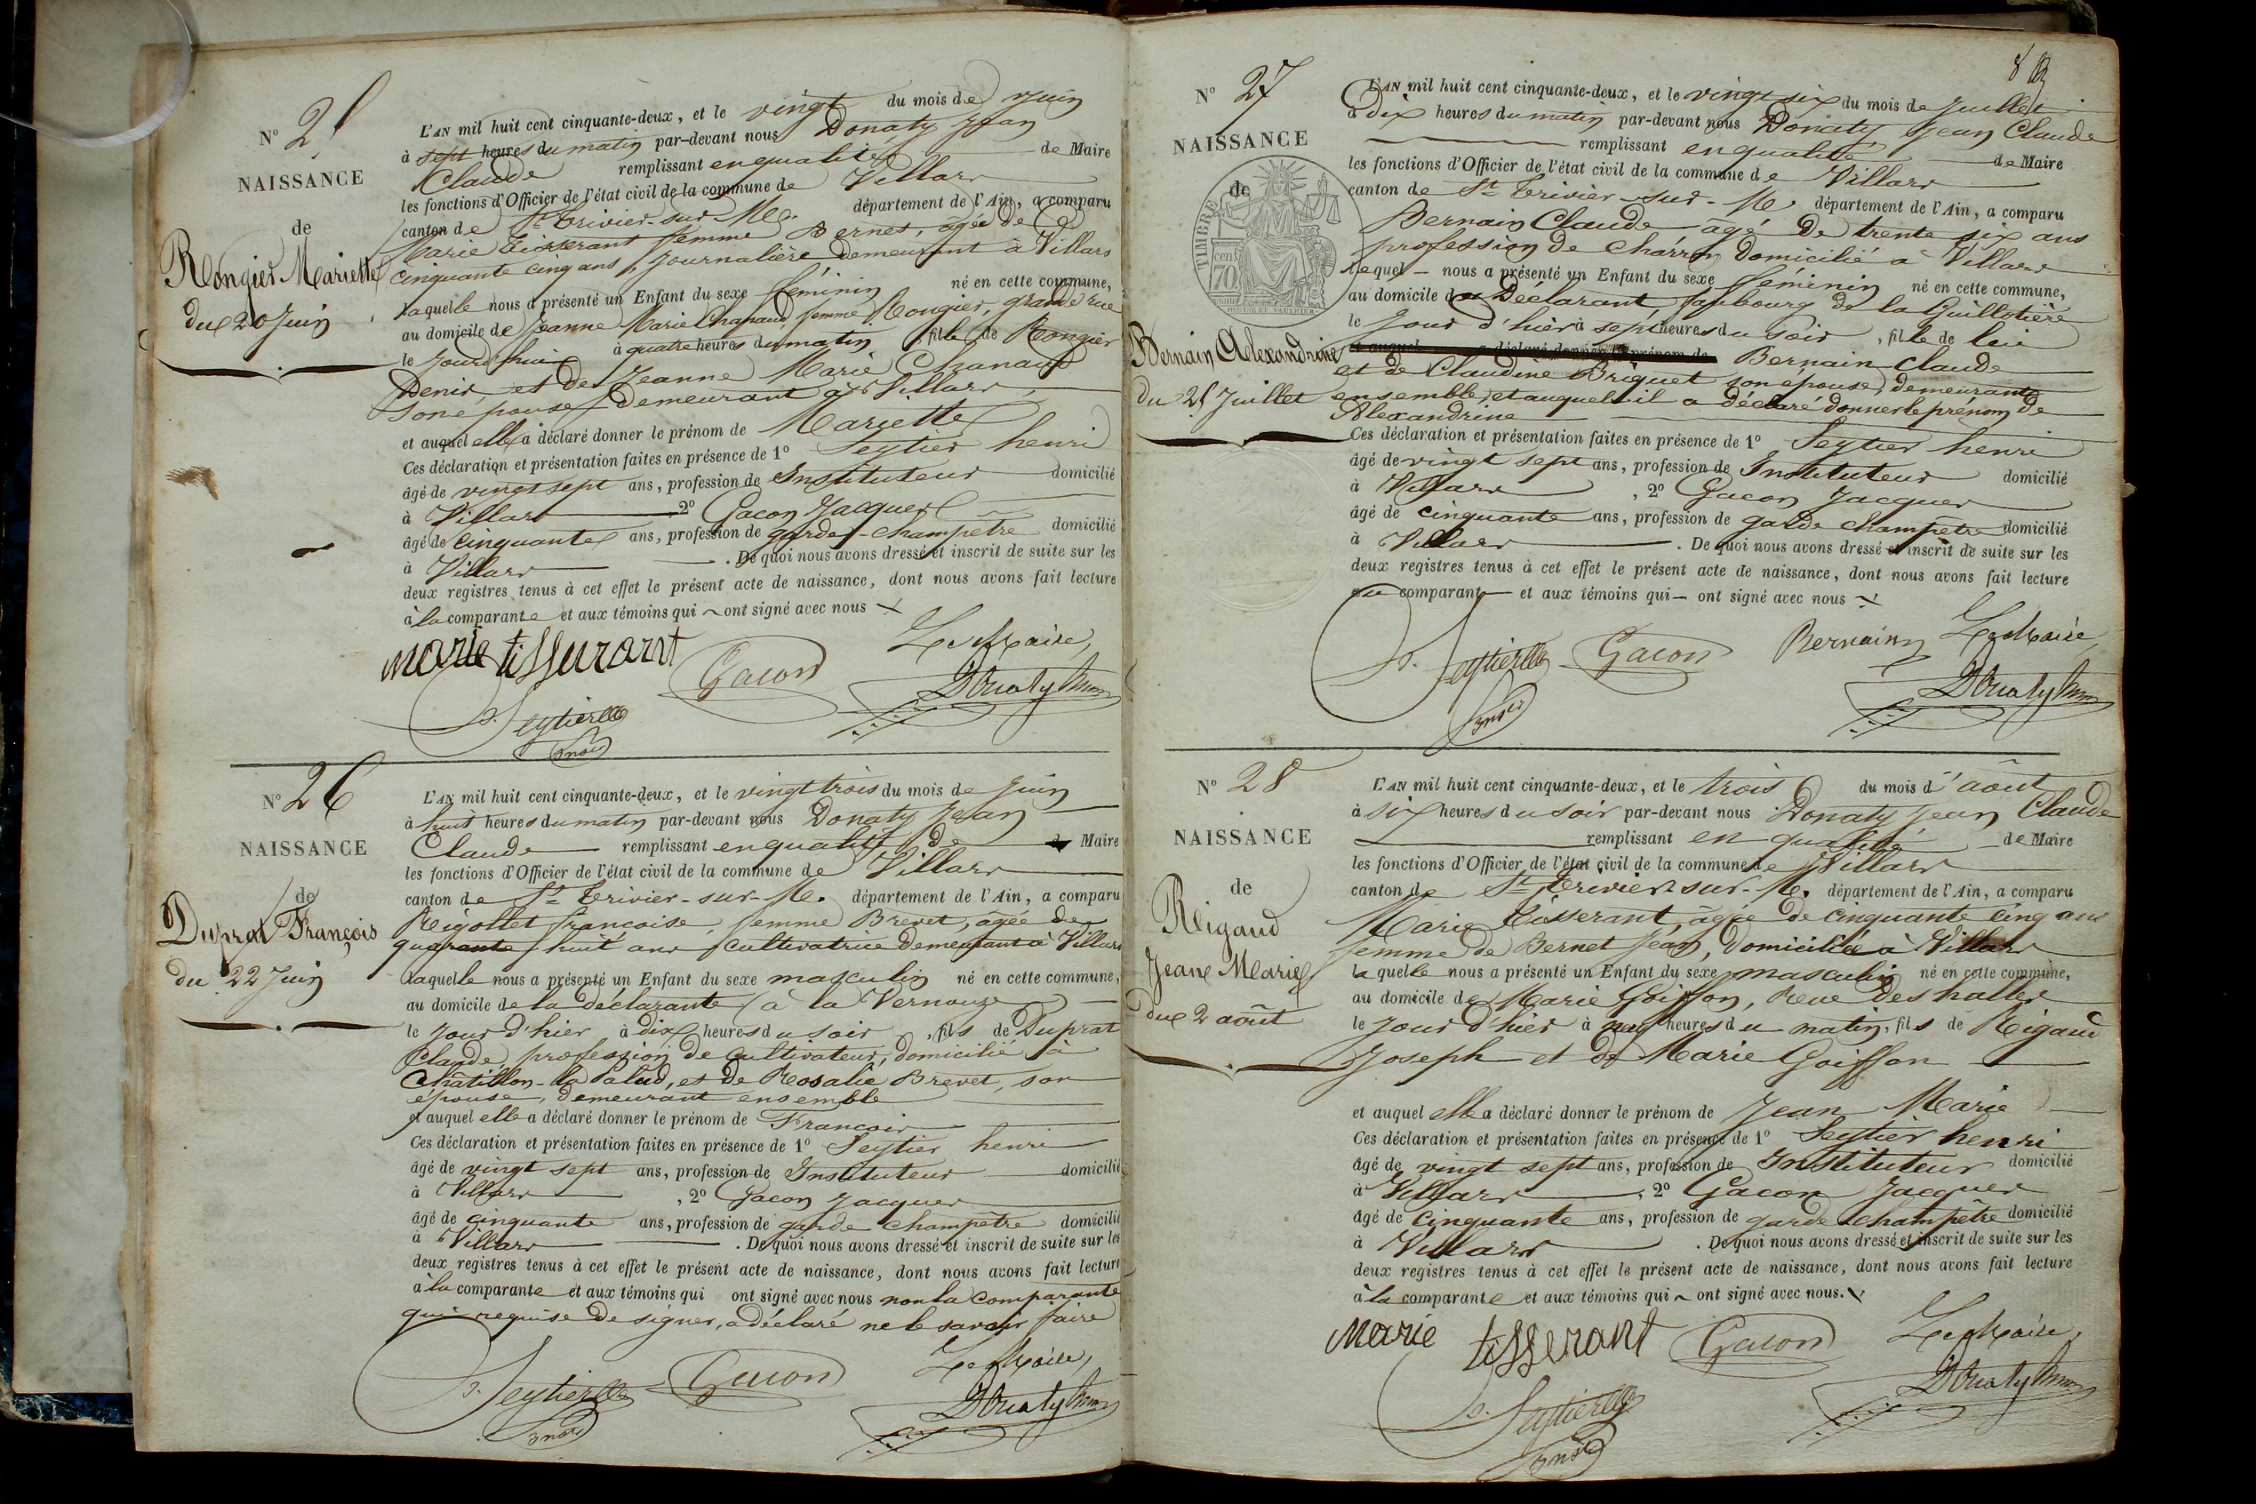 N° 25
NAISSANCE
de
Rongier Mariette
du 20 Juin
L'AN mil huit cent cinquante-deux, et le vingt du mois de Juin
à sept heures du matin par-devant nous Donaty Jean
Claude remplissant en qualité de Maire
les fonctions d'Officier de l'état civil de la commune de Villars
canton de St Trivier-sur-M. département de l'Ain, a comparu
Marie Tisserant femme Bernet, âgée de
cinquante cinq ans, journalière demeurant à Villars
laquelle nous a présenté un Enfant du sexe féminin né en cette commune,
au domicile de Jeanne Marie Chanaud femme Rongier, grande rue
le jourd'hui à quatre heures du matin, fille de Rongier
Denis et de Jeanne Marie Chanaud
son épouse demeurant à Villars
et auquel elle a déclaré donner le prénom de Mariette
Ces déclaration et présentation faites en présence de 1° Seytier henri
âgé de vingt sept ans, profession de Instituteur domicilié
à Villars 2° Gacon Jacques
âgé de cinquante ans, profession de garde-champêtre domicilié
à Villars . De quoi nous avons dressé et inscrit de suite sur les
deux registres tenus à cet effet le présent acte de naissance, dont nous avons fait lecture
à la comparante et aux témoins qui ont signé avec nous
Le Maire,
marie tisserant Gacon Donaty
Seytier
N° 26
NAISSANCE
de
Duprat François
du 22 Juin
L'AN mil huit cent cinquante-deux, et le vingt trois du mois de Juin
à huit heures du matin par-devant nous Donaty Jean
Claude remplissant en qualité de de Maire
les fonctions d'Officier de l'état civil de la commune de Villars
canton de St Trivier-sur-M. département de l'Ain, a comparu
Rigottet françoise, femme Brevet, âgée de
quarante huit ans cultivatrice demeurant à Villars
laquelle nous a présenté un Enfant du sexe masculin né en cette commune,
au domicile de la déclarante (à la Vernouze
le jour d'hier à dix heures du soir, fils de Duprat
Claude, profession de Cultivateur, domicilié à
Châtillon-la-Palud, et de Rosalie Brevet, son
épouse, demeurant ensemble
et auquel elle a déclaré donner le prénom de François
Ces déclaration et présentation faites en présence de 1° Seytier henri
âgé de vingt sept ans, profession de Instituteur domicilié
à Villars, 2° Gacon Jacques
âgé de cinquante ans, profession de garde champêtre domicilié
à Villars . De quoi nous avons dressé et inscrit de suite sur les
deux registres tenus à cet effet le présent acte de naissance, dont nous avons fait lecture
à la comparante et aux témoins qui ont signé avec nous non la comparante
qui requise de signer, a déclaré ne le savoir faire
Le Maire,
Seytier Gacon Donaty
8
N° 27
NAISSANCE
de
TIMBRE
cent 70
Bernain Alexandrine
du 25 Juillet
L'AN mil huit cent cinquante-deux, et le vingt six du mois de Juillet
à Dix heures du matin par-devant nous Donaty Jean Claude
remplissant en qualité de Maire
les fonctions d'Officier de l'état civil de la commune de Villars
canton de St Trivier-sur-M. département de l'Ain, a comparu
Bernain Claude âgé de trente six ans
profession de charron domicilié à Villars
lequel nous a présenté un Enfant du sexe féminin né en cette commune,
au domicile du Déclarant, faubourg de la Guillotière
le Jour d'hier à sept heures du soir, fille de lui
Bernain Claude
et de Claudine Briquet son épouse, demeurants
ensemble, et auquel il a déclaré donner le prénom de
Alexandrine
Ces déclaration et présentation faites en présence de 1° Seytier henri
âgé de vingt sept ans, profession de Instituteur domicilié
à Villars, 2° Gacon Jacques
âgé de cinquante ans, profession de garde champêtre domicilié
à Villars . De quoi nous avons dressé et inscrit de suite sur les
deux registres tenus à cet effet le présent acte de naissance, dont nous avons fait lecture
au comparant et aux témoins qui ont signé avec nous
Seytier Gacon Bernain Le Maire,
Donaty
N° 28
NAISSANCE
de
Rigaud
Jean Marie
du 2 août
L'AN mil huit cent cinquante-deux, et le trois du mois d'août
à six heures du soir par-devant nous Donaty Jean Claude
remplissant en qualité de Maire
les fonctions d'Officier de l'état civil de la commune de Villars
canton de St Trivier-sur-M. département de l'Ain, a comparu
Marie Tisserant, âgée de cinquante cinq ans
femme de Bernet Jean, domiciliée à Villars
laquelle nous a présenté un Enfant du sexe masculin né en cette commune,
au domicile de Marie Goiffon, Rue des halles
le jour d'hier à neuf heures du matin, fils de Rigaud
Joseph et de Marie Goiffon
et auquel elle a déclaré donner le prénom de Jean Marie
Ces déclaration et présentation faites en présence de 1° Seytier henri
âgé de vingt sept ans, profession de Instituteur domicilié
à Villars, 2° Gacon Jacques
âgé de cinquante ans, profession de garde champêtre domicilié
à Villars . De quoi nous avons dressé et inscrit de suite sur les
deux registres tenus à cet effet le présent acte de naissance, dont nous avons fait lecture
à la comparante et aux témoins qui ont signé avec nous.
marie tisserant Gacon Le Maire,
Seytier Donaty